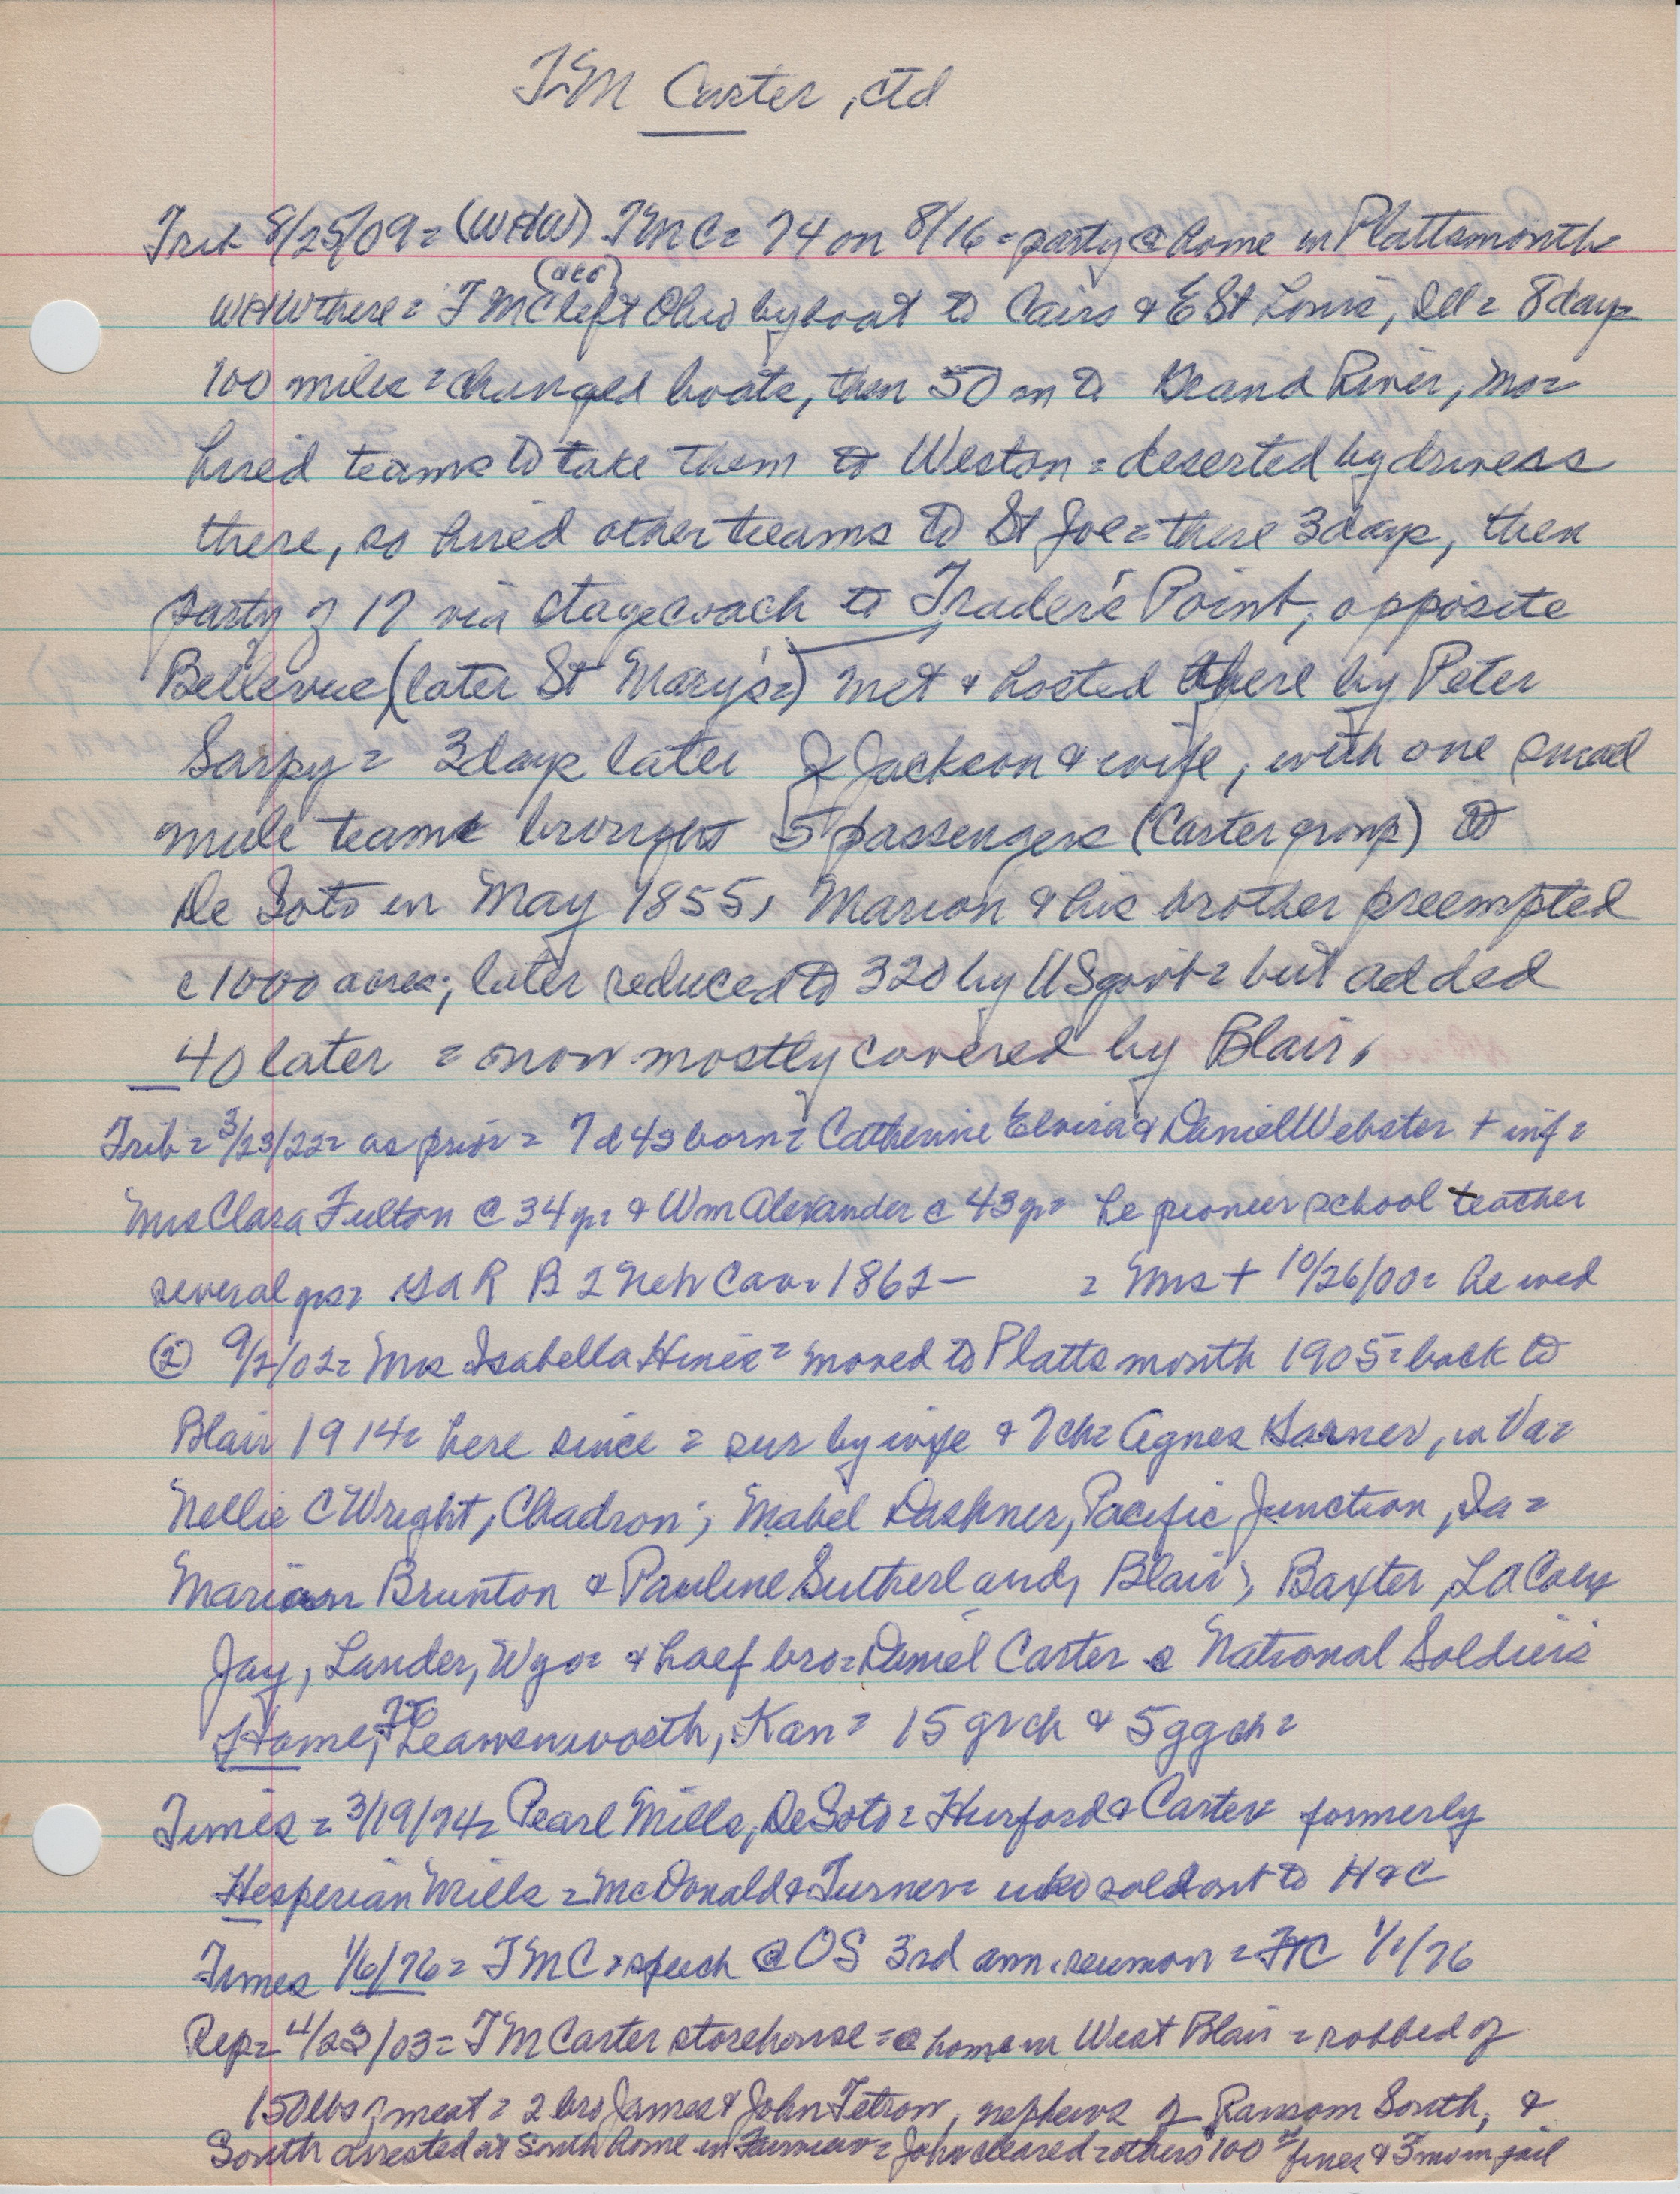 TM Carter, ctd
Trib 8/25/09 = (WHW) TMC = 74 on 8/16 = party @ home in Plattsmouth
WHW there = TMC (acc) left Ohio by boat to Cairo & E St Louis, Ill = 8 days
100 miles = changed boats, then 50 m to Grand River, Mo =
hired teams to take them to Weston = deserted by drivers
there, so hired other teams to St Joe = there 3 days, then
party of 17 via stagecoach to Trader's Point, opposite
Bellevue (later St Mary's =) met & hosted there by Peter
Sarpy = 3 days later J Jackson & wife, with one small
mule team brought 5 passengers (Carter group) to
De Soto in May 1855, Marion & his brother preempted
c 1000 acres; later reduced to 320 by US govt = but added
40 later = now mostly covered by Blair.
Trib = 3/23/22 = as prior = 7 d 4 s born = Catherine Elvira & Daniel Webster + inf =
Mrs Clara Fulton @ 34 yr = & Wm Alexander c 43 yr = he pioneer school teacher
several yrs = GAR B 2 Neb Cav. 1862 – = Mrs + 10/26/00 = he wed
② 9/2/02 = Mrs Isabella Hines = moved to Plattsmouth 1905 = back to
Blair 1914 = here since = sur by wife & 7 ch = Agnes Garner, in Va =
Nellie C Wright, Chadron; Mabel Dashner, Pacific Junction, Ia =
Marion Brunton & Pauline Sutherland, Blair; Baxter, LA
Jay, Lander, Wyo = & half bro = Daniel Carter @ National Soldiers
Home, Ft Leavenworth, Kan = 15 grch & 5 ggch =
Times = 3/19/74 = Pearl Mills, De Soto = Hurford & Carter = formerly
Hesperian Mills = McDonald & Turner = who sold out to H & C
Times 1/6/76 = TMC = speech @ OS 3rd ann. reunion = FtC 1/1/76
Rep = 4/23/03 = TM Carter storehouse = @ home in West Blair = robbed of
150 lbs of meat = 2 bro James & John Tetrow, nephews of Ransom South, &
South arrested at South home in Fairview = John cleared = others 100 $ fines & 3 mo in jail